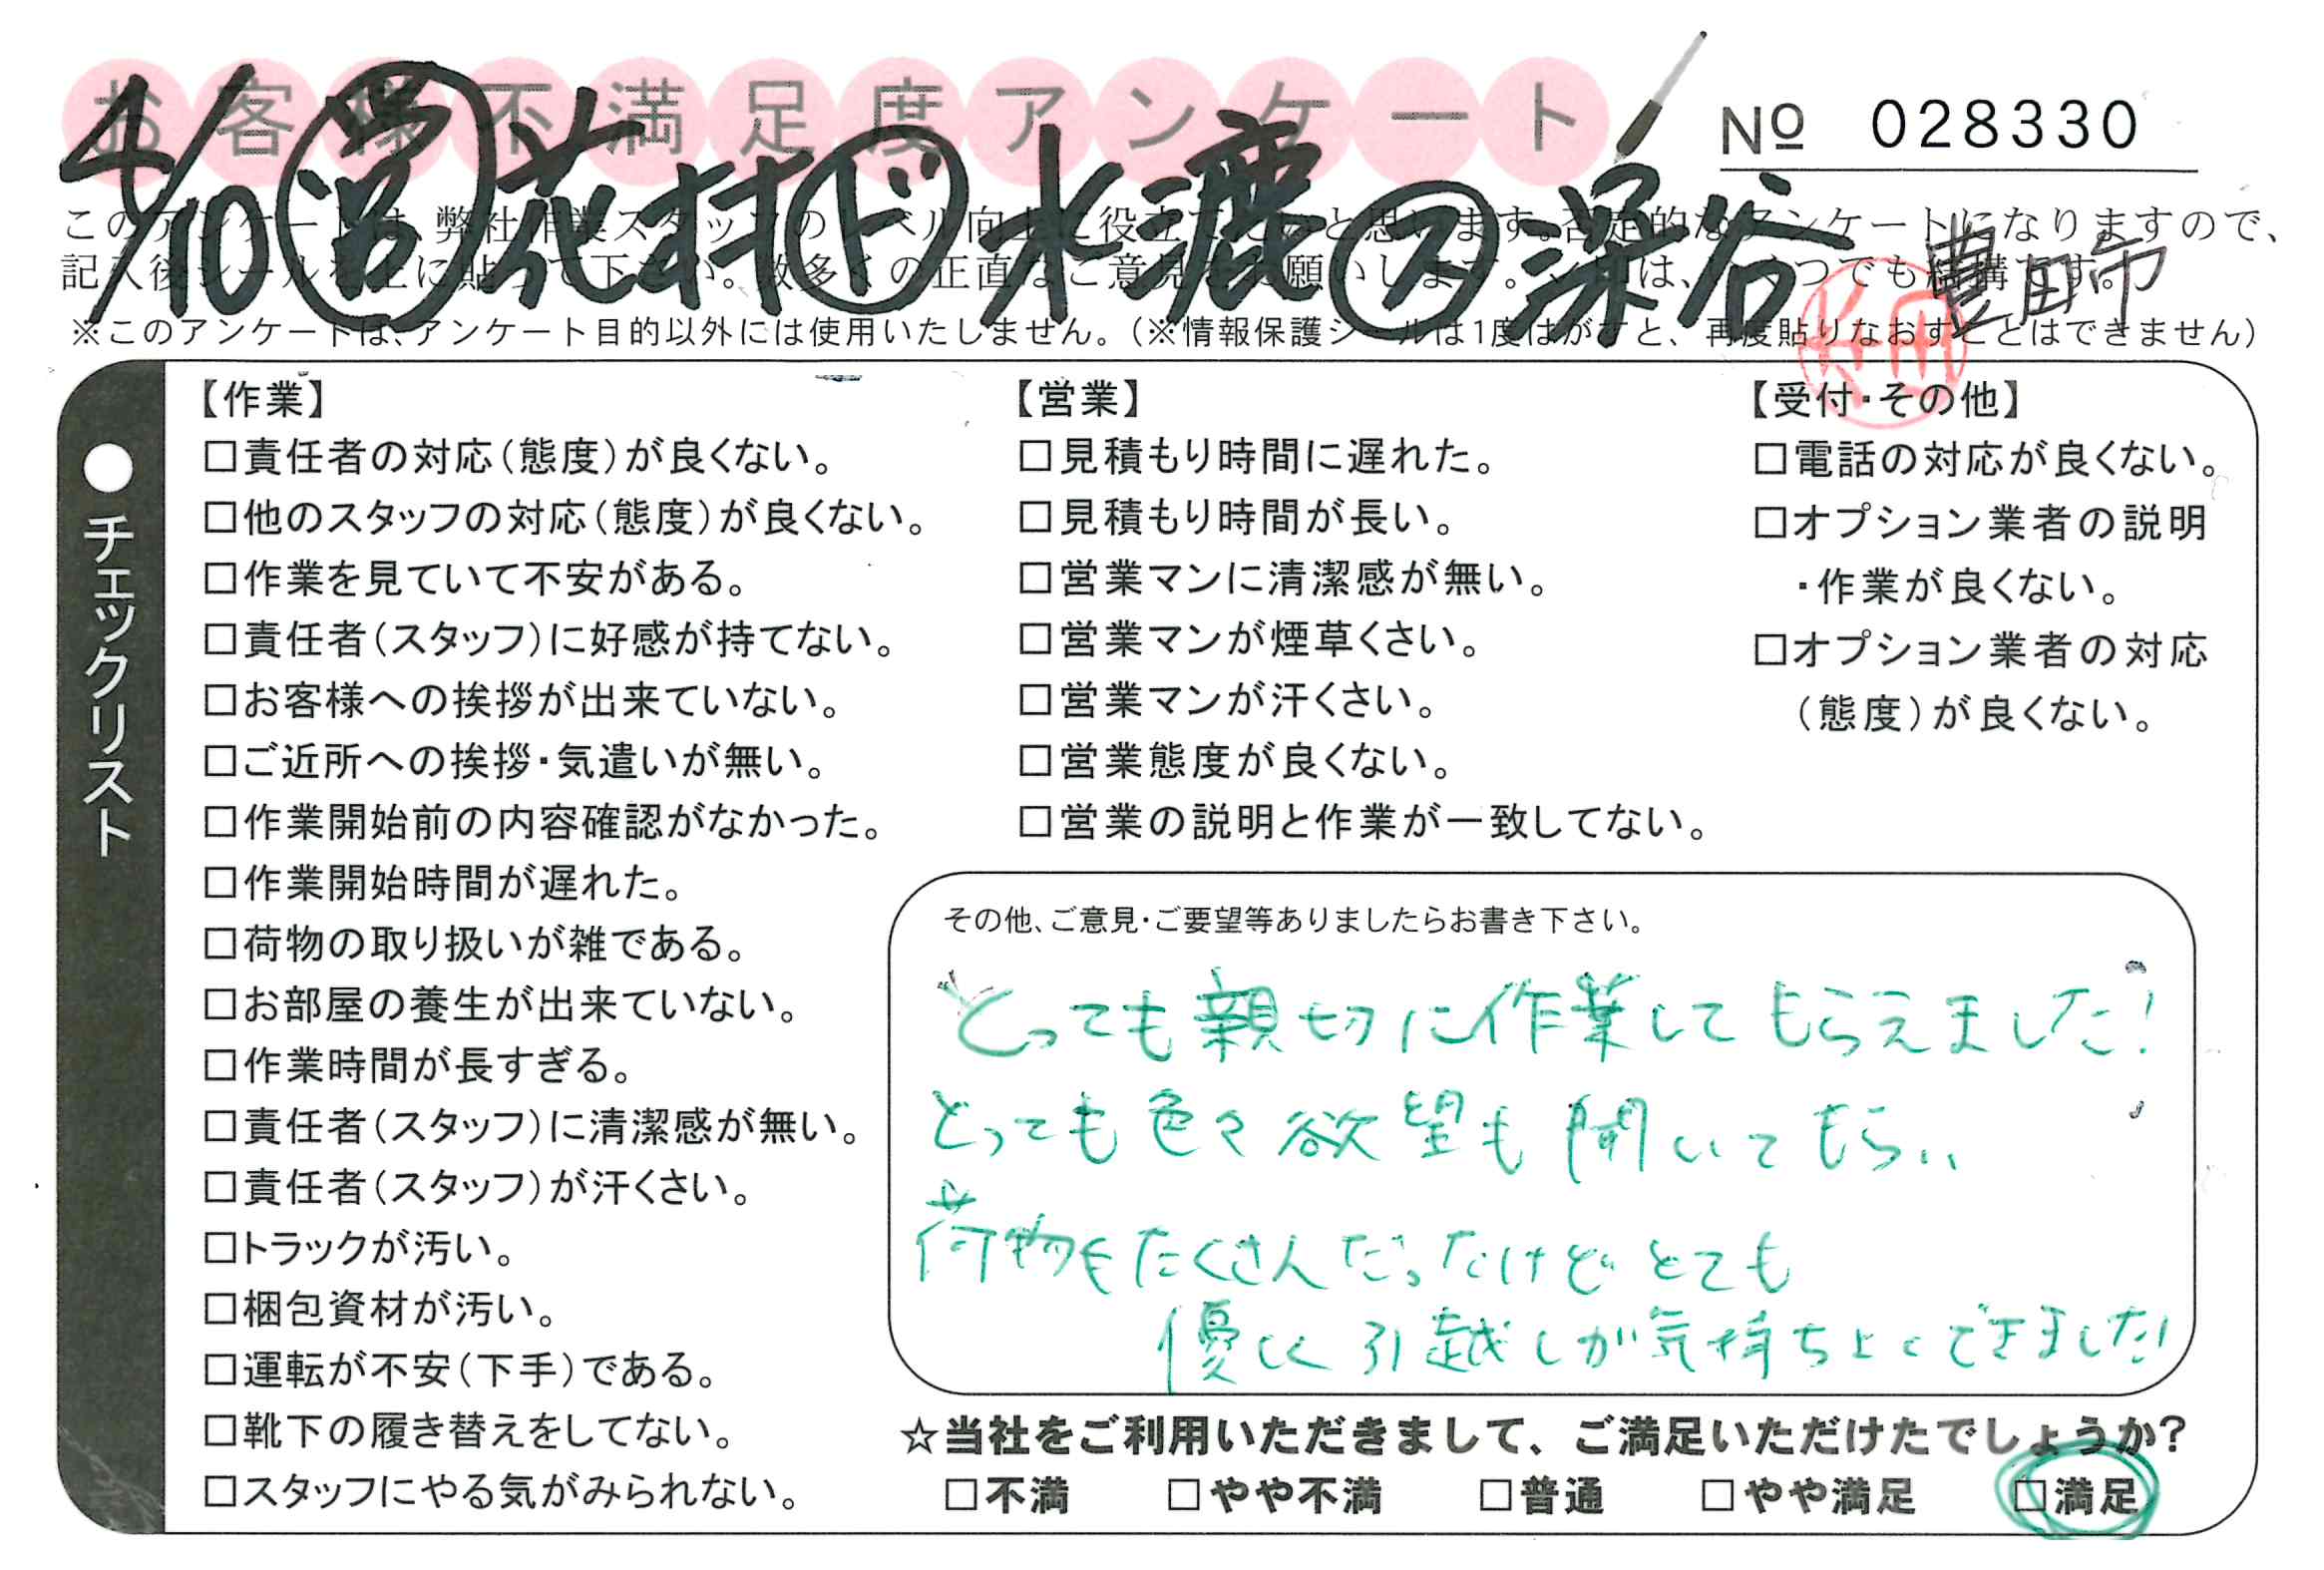 お客様不満足度アンケート
№ 028330
4/10 営 花村 ド 水漉 ス 深谷
豊田市
このアンケートは、弊社作業スタッフのレベル向上に役立てたいと思います。否定的なアンケートになりますので、
記入後シールを上に貼って下さい。数多くの正直なご意見をお願いします。いくつでも結構です。
※このアンケートは、アンケート目的以外には使用いたしません。(※情報保護シールは1度はがすと、再度貼りなおすことはできません)
●チェックリスト
【作業】
□責任者の対応(態度)が良くない。
□他のスタッフの対応(態度)が良くない。
□作業を見ていて不安がある。
□責任者(スタッフ)に好感が持てない。
□お客様への挨拶が出来ていない。
□ご近所への挨拶・気遣いが無い。
□作業開始前の内容確認がなかった。
□作業開始時間が遅れた。
□荷物の取り扱いが雑である。
□お部屋の養生が出来ていない。
□作業時間が長すぎる。
□責任者(スタッフ)に清潔感が無い。
□責任者(スタッフ)が汗くさい。
□トラックが汚い。
□梱包資材が汚い。
□運転が不安(下手)である。
□靴下の履き替えをしてない。
□スタッフにやる気がみられない。
【営業】
□見積もり時間に遅れた。
□見積もり時間が長い。
□営業マンに清潔感が無い。
□営業マンが煙草くさい。
□営業マンが汗くさい。
□営業態度が良くない。
□営業の説明と作業が一致してない。
【受付・その他】
□電話の対応が良くない。
□オプション業者の説明
・作業が良くない。
□オプション業者の対応
(態度)が良くない。
その他、ご意見・ご要望等ありましたらお書き下さい。
とっても親切に作業してもらえました!
とっても色々欲望も聞いてもらい
荷物もたくさんだったけどとても
優しく引越しが気持ちよくできました!
☆当社をご利用いただきまして、ご満足いただけたでしょうか?
□不満 □やや不満 □普通 □やや満足 □満足